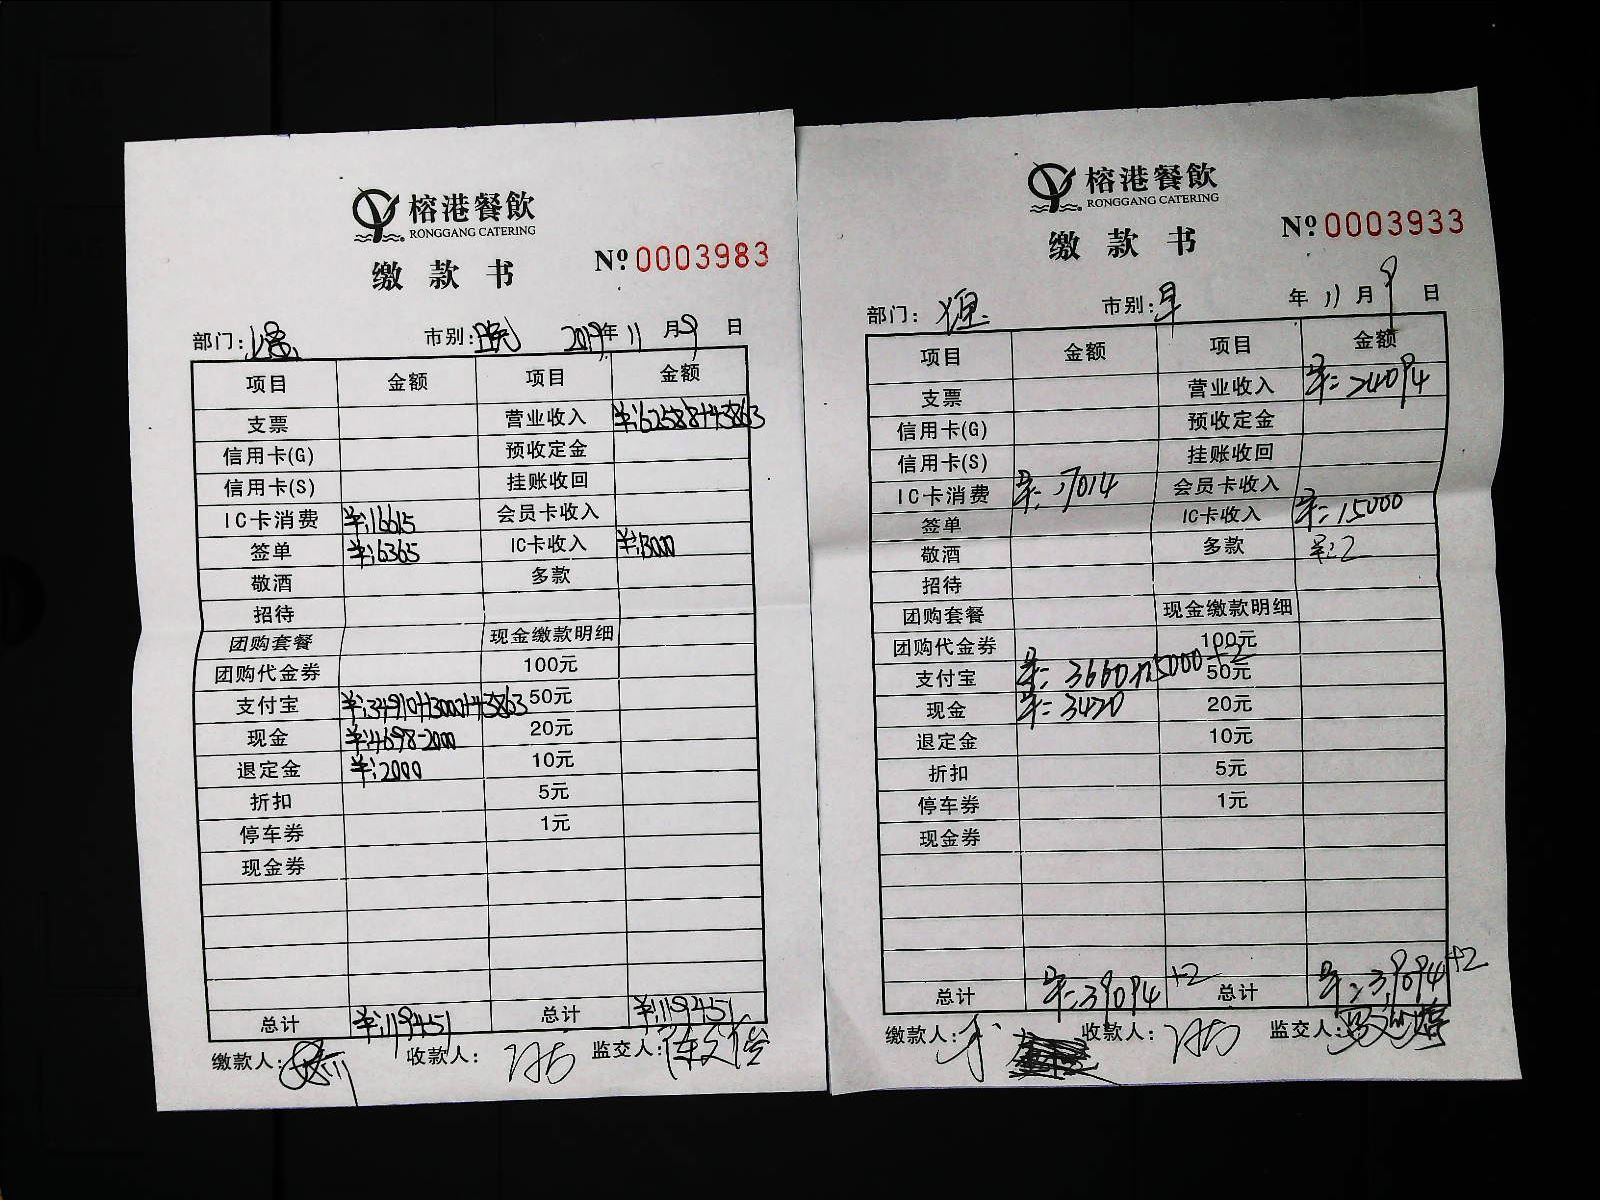 榕港餐飲
RONGGANG CATERING
缴款书
Nº 0003983
部门: 市别:晚 2019年11月9日
项目 金额 项目 金额
支票 营业收入 ¥:62588+43863
信用卡(G) 预收定金
信用卡(S) 挂账收回
IC卡消费 ¥:16615 会员卡收入
签单 ¥:6365 IC卡收入 ¥:13000
敬酒 多款
招待
团购套餐 现金缴款明细
团购代金券 100元
支付宝 ¥:34910+13000+43863 50元
现金 ¥:4698-2000 20元
退定金 ¥:2000 10元
折扣 5元
停车券 1元
现金券
总计 ¥:119451 总计 ¥:119451
缴款人: 收款人: 监交人:
榕港餐飲
RONGGANG CATERING
缴款书
Nº 0003933
部门: 市别:早 年11月9日
项目 金额 项目 金额
支票 营业收入 ¥:24094
信用卡(G) 预收定金
信用卡(S) 挂账收回
IC卡消费 ¥:17014 会员卡收入
签单 IC卡收入 ¥:15000
敬酒 多款 ¥:2
招待
团购套餐 现金缴款明细
团购代金券 100元
支付宝 ¥:3660+15000+2 50元
现金 ¥:3420 20元
退定金 10元
折扣 5元
停车券 1元
现金券
总计 ¥:39094+2 总计 ¥:39094+2
缴款人: 收款人: 监交人: